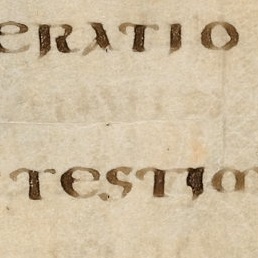 eratio
testim